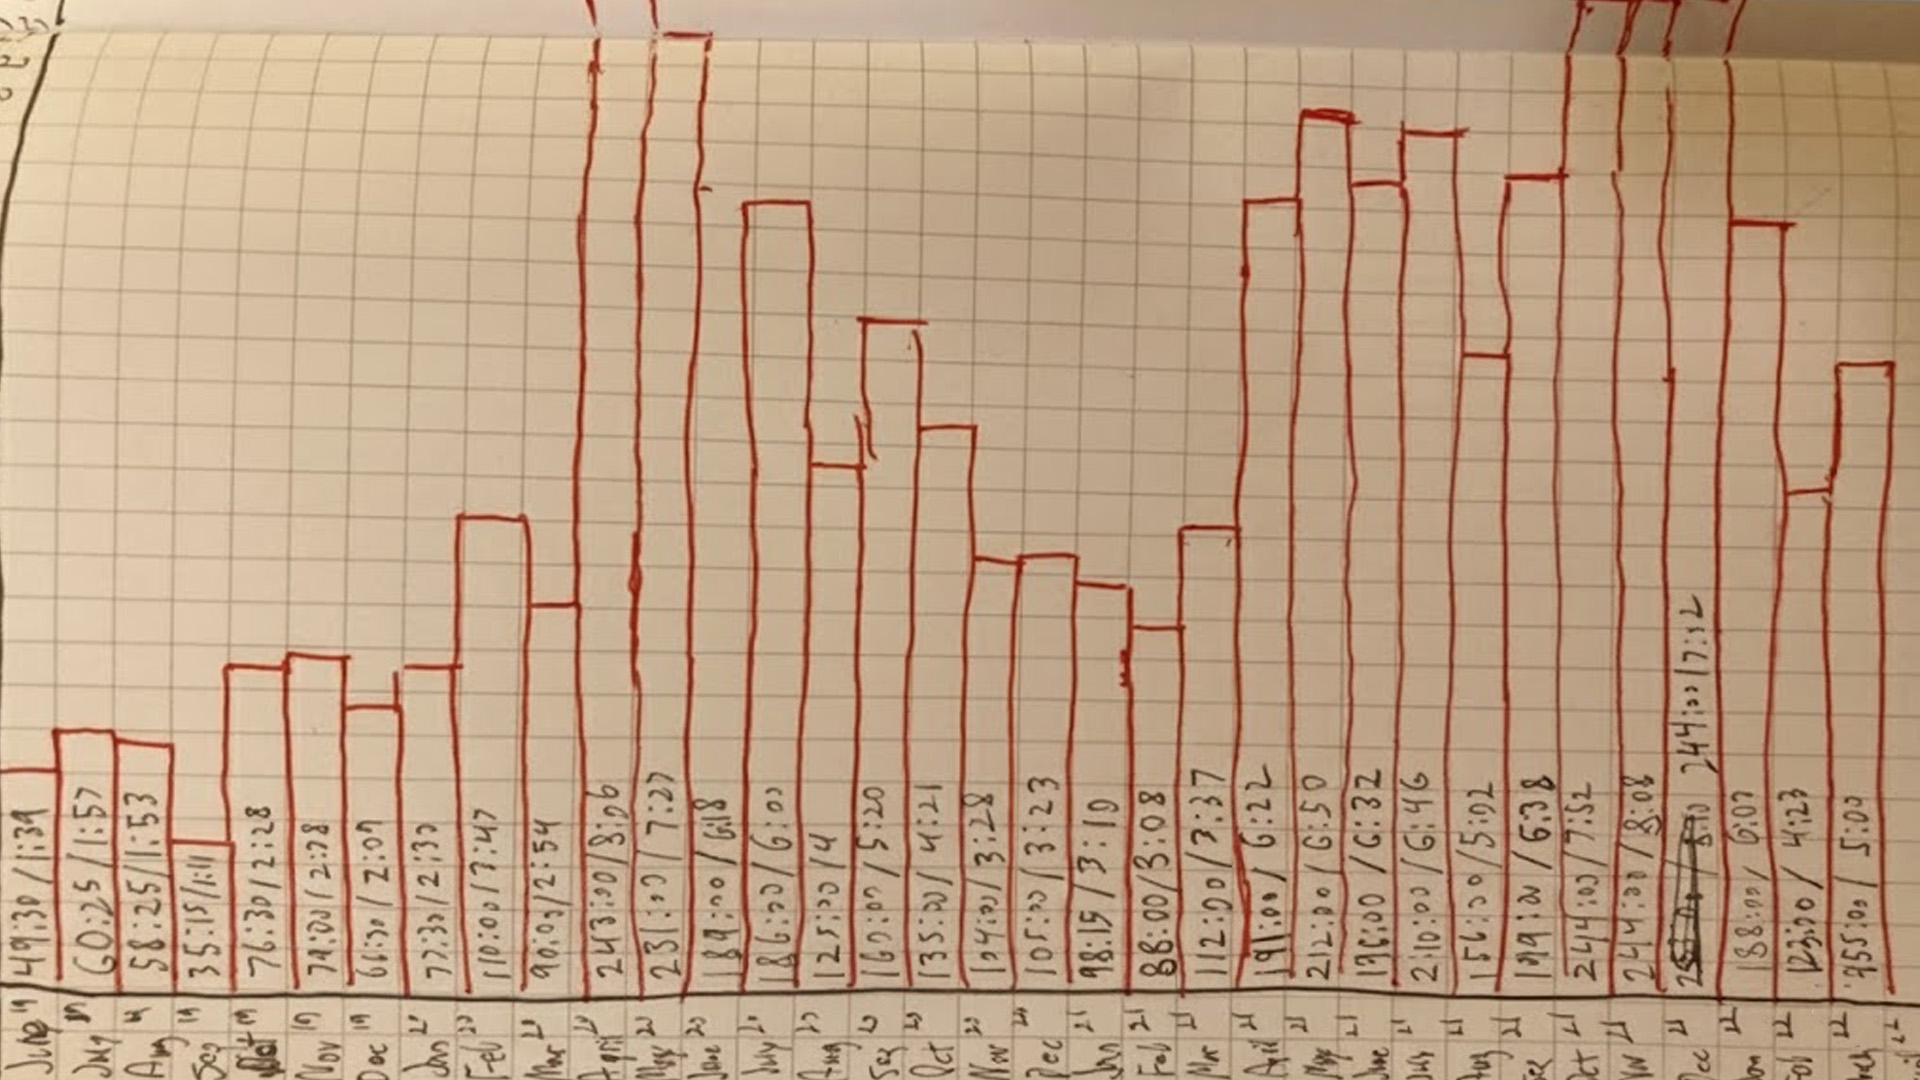 49:30/1:39
60:25/1:57
58:25/1:53
35:15/1:11
76:30/2:28
79:00/2:38
66:30/2:09
77:30/2:30
110:00/3:47
90:00/2:54
243:00/8:06
231:00/7:27
189:00/6:18
186:00/6:00
125:00/4
160:00/5:20
135:00/4:21
104:00/3:28
105:00/3:23
98:15/3:10
88:00/3:08
112:00/3:37
191:00/6:22
212:00/6:50
196:00/6:32
210:00/6:46
156:00/5:02
199:00/6:38
244:00/7:52
244:00/8:08
8:10 244:00/7:52
188:00/6:00
123:00/4:23
155:00/5:00
June 19
July 19
Aug 19
Sep 19
Oct 19
Nov 19
Dec 19
Jan 20
Feb 20
Mar 20
April 20
May 20
June 20
July 20
Aug 20
Sep 20
Oct 20
Nov 20
Dec 20
Jan 21
Feb 21
Mar 21
April 21
May 21
June 21
July 21
Aug 21
Sep 21
Oct 21
Nov 21
Dec 21
22
Feb 22
22
22